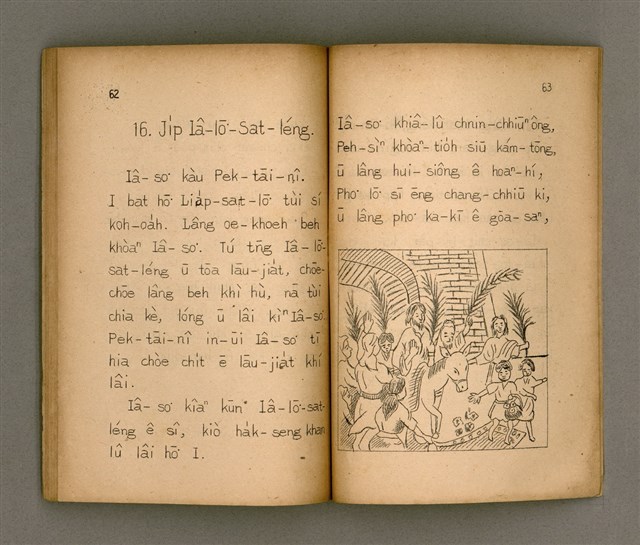 62
16. Ji̍p Iâ-lō͘-sat-léng.
Iâ-so͘ kàu Pek-tāi-nî.
I bat hō͘ Lia̍p-sat-lō͘ tùi sí
koh-oa̍h. Lâng oe-khoeh beh
khòaⁿ Iâ-so͘. Tú tn̄g Iâ-lō͘-
sat-léng ū tōa lāu-jia̍t, chōe-
chōe lâng beh khì hù, nā tùi
chia kè, lóng ū lâi kìⁿ Iâ-so͘.
Pek-tāi-nî in-ūi Iâ-so͘ tī
hia chòe chi̍t ē lāu-jia̍t khí
lâi.
Iâ-so͘ kîaⁿ kūn Iâ-lō͘-sat-
léng ê sî, kiò ha̍k-seng khan
lû lâi hō͘ I.
63
Iâ-so͘ khiâ-lû chnin-chhiūⁿ ông,
Peh-sìⁿ khòaⁿ-tio̍h siū kám-tōng,
ū lâng hui-siông ê hoaⁿ-hí,
Pho͘ lō͘ sī ēng chang-chhiū ki,
ū lâng pho͘ ka-kī ê gōa-saⁿ,